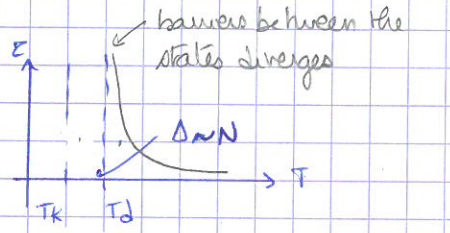 barriers between the
states diverges
τ
Δ~N
T
Tk
Td